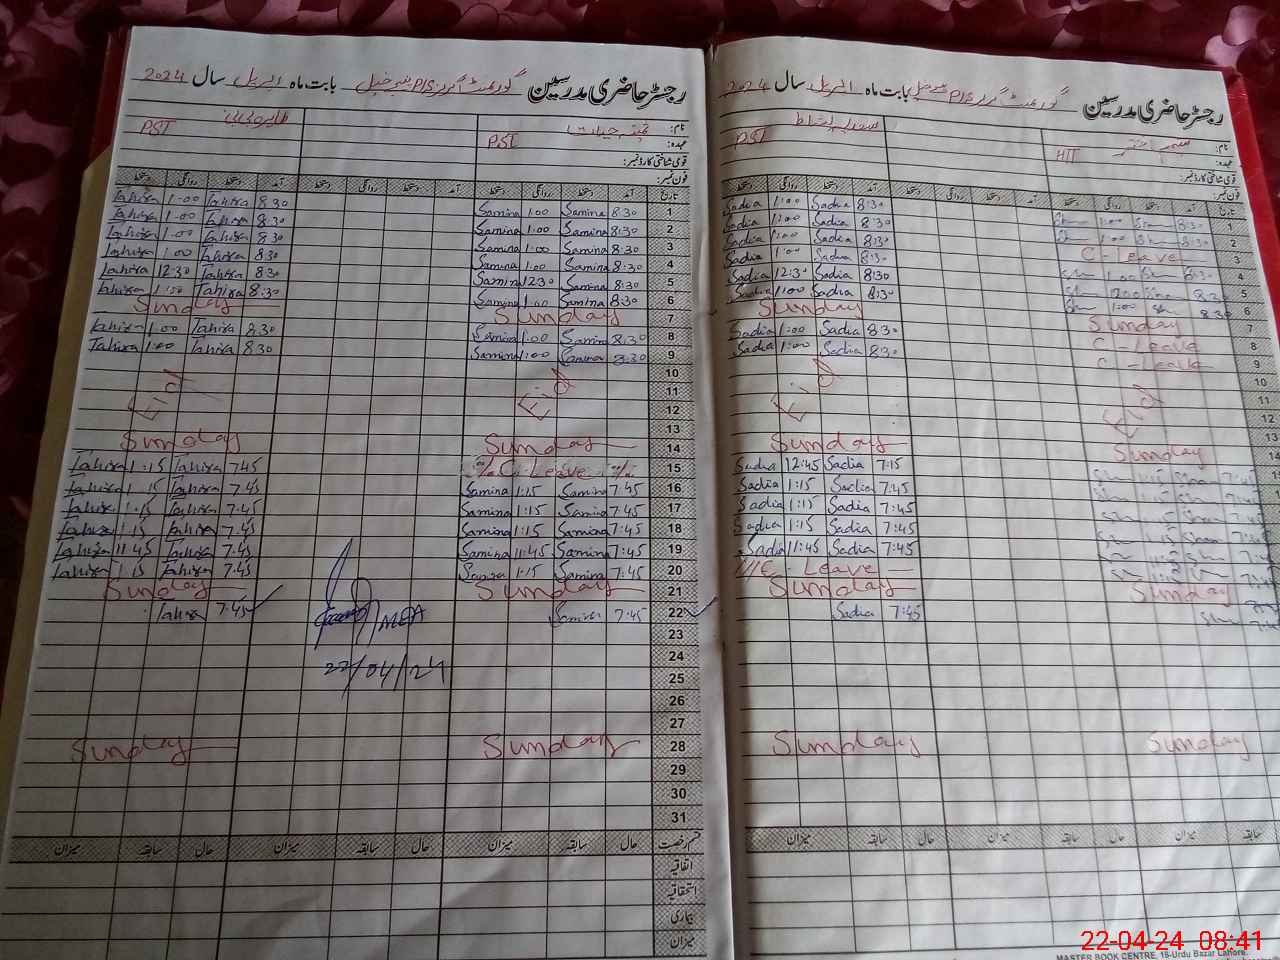 رجسٹر حاضری مدرسین گورنمنٹ گرلز P/S خیل بابت ماہ اپریل سال 2024
نام:
عہدہ: PST PST
قومی شناختی کارڈ نمبر:
فون نمبر:
تاریخ آمد دستخط روانگی دستخط آمد دستخط روانگی دستخط آمد دستخط روانگی دستخط
1 8:30 Samina 1:00 Samina 8:30 Tahira 1:00 Tahira
2 8:30 Samina 1:00 Samina 8:30 Tahira 1:00 Tahira
3 8:30 Samina 1:00 Samina 8:30 Tahira 1:00 Tahira
4 8:30 Samina 1:00 Samina 8:30 Tahira 1:00 Tahira
5 8:30 Samina 12:30 Samina 8:30 Tahira 12:30 Tahira
6 8:30 Samina 1:00 Samina 8:30 Tahira 1:00 Tahira
7 Sunday Sunday
8 8:30 Samina 1:00 Samina 8:30 Tahira 1:00 Tahira
9 8:30 Samina 1:00 Samina 8:30 Tahira 1:00 Tahira
10
11 Eid Eid
12
13
14 Sunday Sunday
15 C-Leave 7:45 Tahira 1:15 Tahira
16 7:45 Samina 1:15 Samina 7:45 Tahira 1:15 Tahira
17 7:45 Samina 1:15 Samina 7:45 Tahira 1:15 Tahira
18 7:45 Samina 1:15 Samina 7:45 Tahira 1:15 Tahira
19 7:45 Samina 11:45 Samina 7:45 Tahira 11:45 Tahira
20 7:45 Samina 1:15 Samina 7:45 Tahira 1:15 Tahira
21 Sunday Sunday
22 7:45 Samina 7:45 Tahira
23
MEA
24
22/04/24
25
26
27
28 Sunday Sunday
29
30
31
قسم رخصت حال سابقہ میزان حال سابقہ میزان حال سابقہ میزان
اتفاقیہ
استحقاقیہ
بیماری
میزان
رجسٹر حاضری مدرسین گورنمنٹ گرلز P/S خیل بابت ماہ اپریل سال 2024
نام:
عہدہ: PST
قومی شناختی کارڈ نمبر:
فون نمبر:
تاریخ آمد دستخط روانگی دستخط آمد دستخط روانگی دستخط آمد دستخط روانگی دستخط
1 8:30 1:00 8:30 Sadia 1:00 Sadia
2 8:30 1:00 8:30 Sadia 1:00 Sadia
3 C-Leave 8:30 Sadia 1:00 Sadia
4 8:30 1:00 8:30 Sadia 1:00 Sadia
5 8:30 8:30 Sadia 12:30 Sadia
6 8:30 1:00 8:30 Sadia 1:00 Sadia
7 Sunday Sunday
8 C-Leave 8:30 Sadia 1:00 Sadia
9 C-Leave 8:30 Sadia 1:00 Sadia
10
11 Eid Eid
12
13
14 Sunday Sunday
7:15 Sadia 12:45 Sadia
7:45 Sadia 1:15 Sadia
7:45 Sadia 1:15 Sadia
7:45 Sadia 1:15 Sadia
7:45 Sadia 11:45 Sadia
Leave
Sunday Sunday
7:45 Sadia
Sunday Sunday
سابقہ میزان حال سابقہ میزان حال سابقہ میزان
MASTER BOOK CENTRE, 18-Urdu Bazar Lahore.
22-04-24 08:41